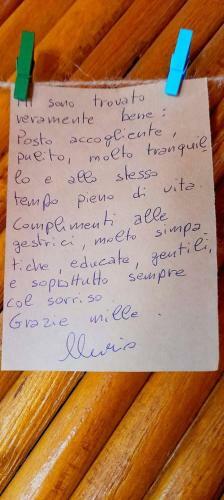 Mi sono trovato
veramente bene:
Posto accogliente,
pulito, molto tranquil
lo e allo stesso
tempo pieno di vita.
Complimenti alle
gestrici, molto simpa
tiche, educate, gentili,
e soprattutto sempre
col sorriso
Grazie mille.